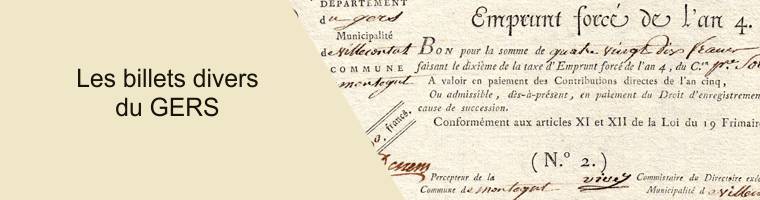 Les billets divers
du GERS
DÉPARTEMENT
du gers
Municipalité
de villecontat
COMMUNE
montegut
Emprunt forcé de l'an 4.
BON pour la somme de quatre vingt dix francs
faisant le dixième de la taxe d'Emprunt forcé de l'an 4, du C.en
A valoir en paiement des Contributions directes de l'an cinq,
Ou admissible, dès-à-présent, en paiement du Droit d'enregistremen
cause de succession.
Conformément aux articles XI et XII de la Loi du 19 Frimaire
francs.
(N.° 2.)
Percepteur de la
Commune de montegut
Commissaire du Directoire exé
Municipalité d